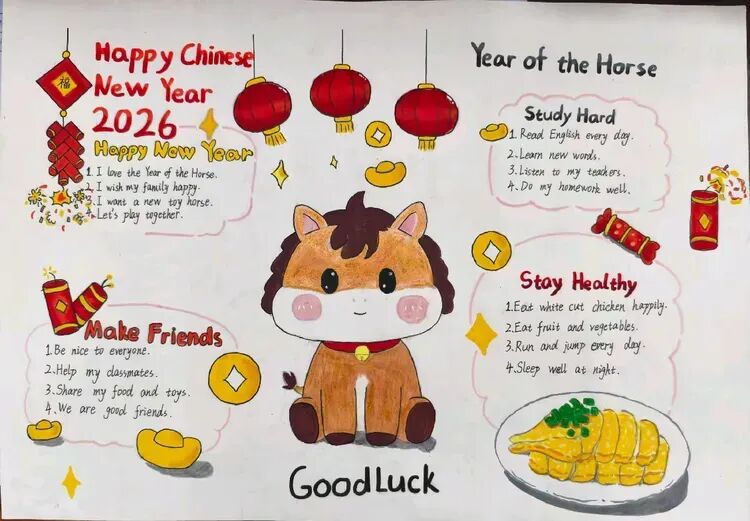 福
Happy Chinese
New Year
2026
Happy New Year
1. I love the Year of the Horse.
2. I wish my family happy.
3. I want a new toy horse.
4. Let's play together.
Year of the Horse
Study Hard
1. Read English every day.
2. Learn new words.
3. Listen to my teachers.
4. Do my homework well.
Make Friends
1. Be nice to everyone.
2. Help my classmates.
3. Share my food and toys.
4. We are good friends.
Stay Healthy
1. Eat white cut chicken happily.
2. Eat fruit and vegetables.
3. Run and jump every day.
4. Sleep well at night.
Good Luck